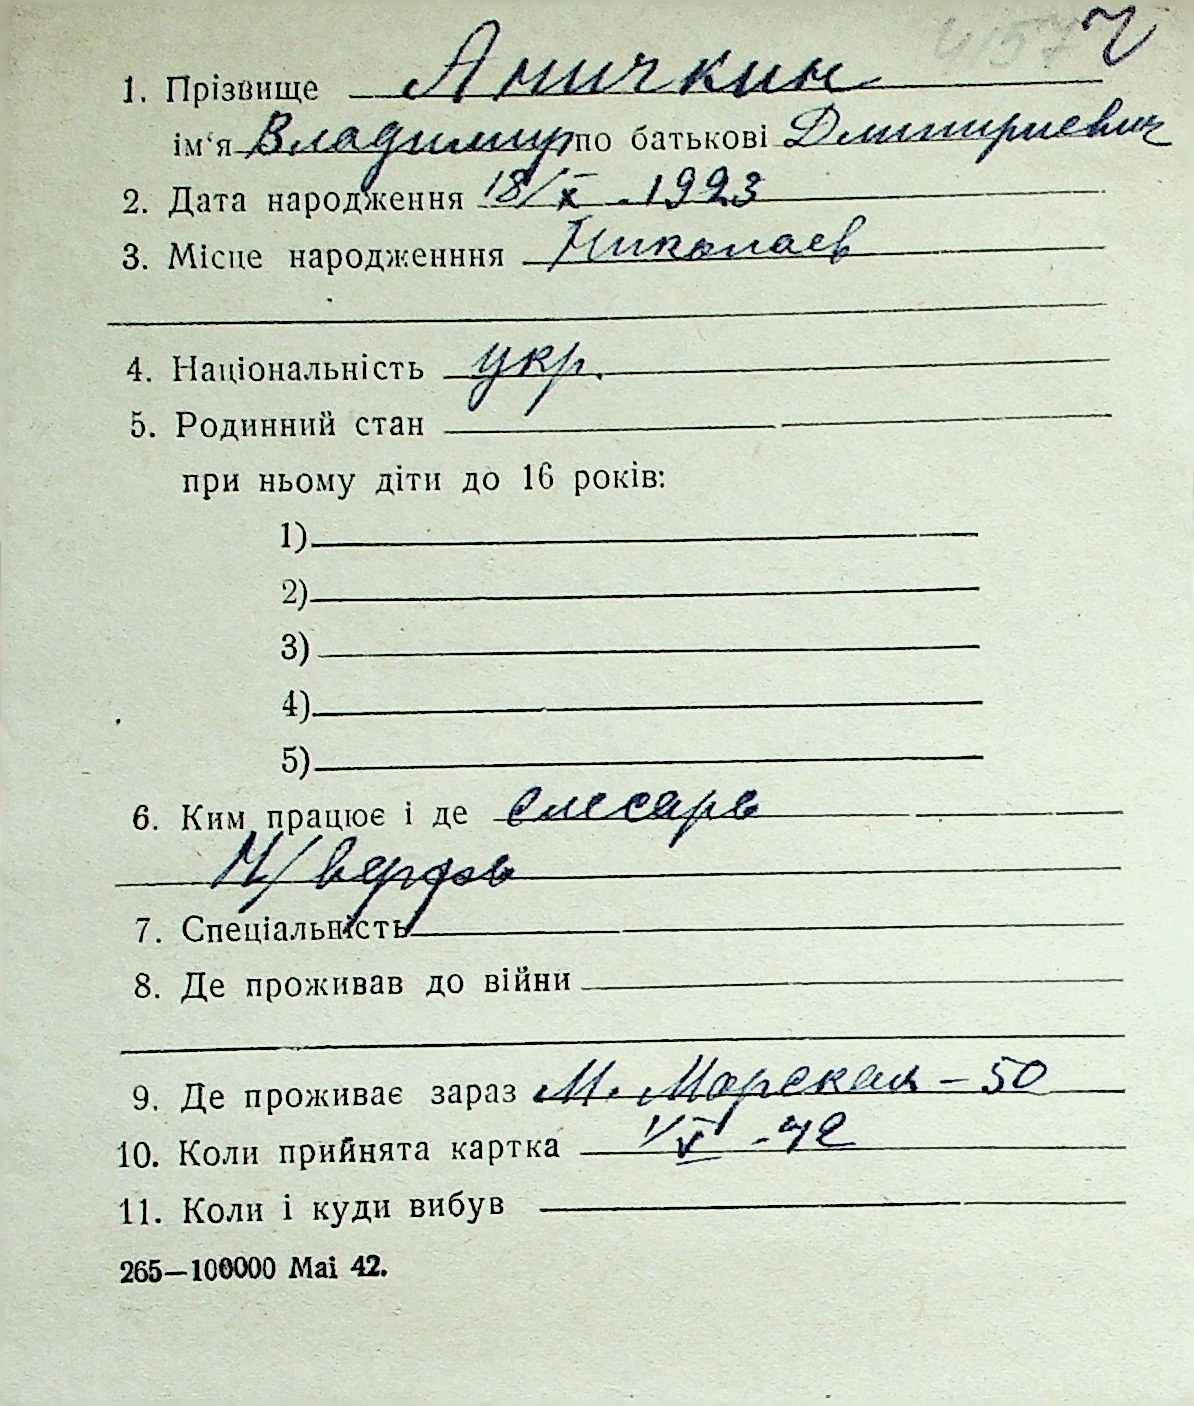 4157 ч
1. Прізвище Аничкин
ім‘я Владимир по батькові Дмитриевич
2. Дата народження 18/X .1923
3. Місце народженння Николаев
4. Національність укр.
5. Родинний стан
при ньому діти до 16 років:
1)
2)
3)
4)
5)
6. Ким працює і де слесарь
М/верфь
7. Спеціальність
8. Де проживав до війни
9. Де проживає зараз М. Морская – 50
10. Коли прийнята картка -42
11. Коли і куди вибув
265—100000 Маі 42.